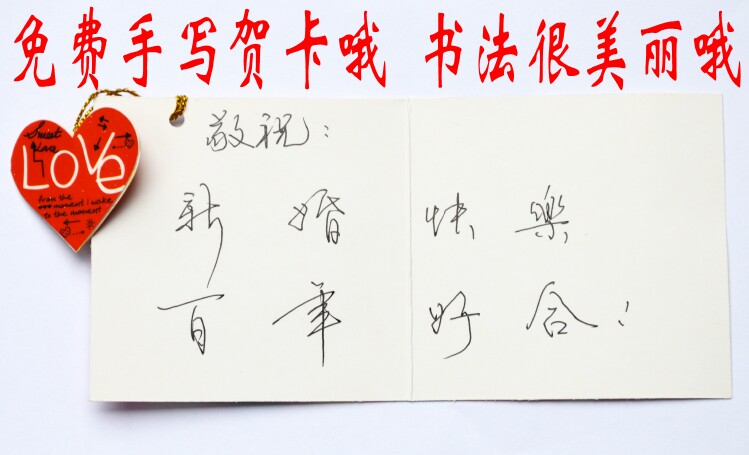 免费手写贺卡哦 书法很美丽哦
敬祝：
新婚快樂
百年好合！
Sweet
Love
LOVe
from the
moment i wake
to the moment